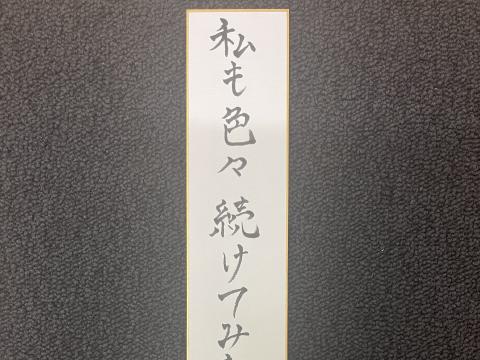 私も色々続けてみ